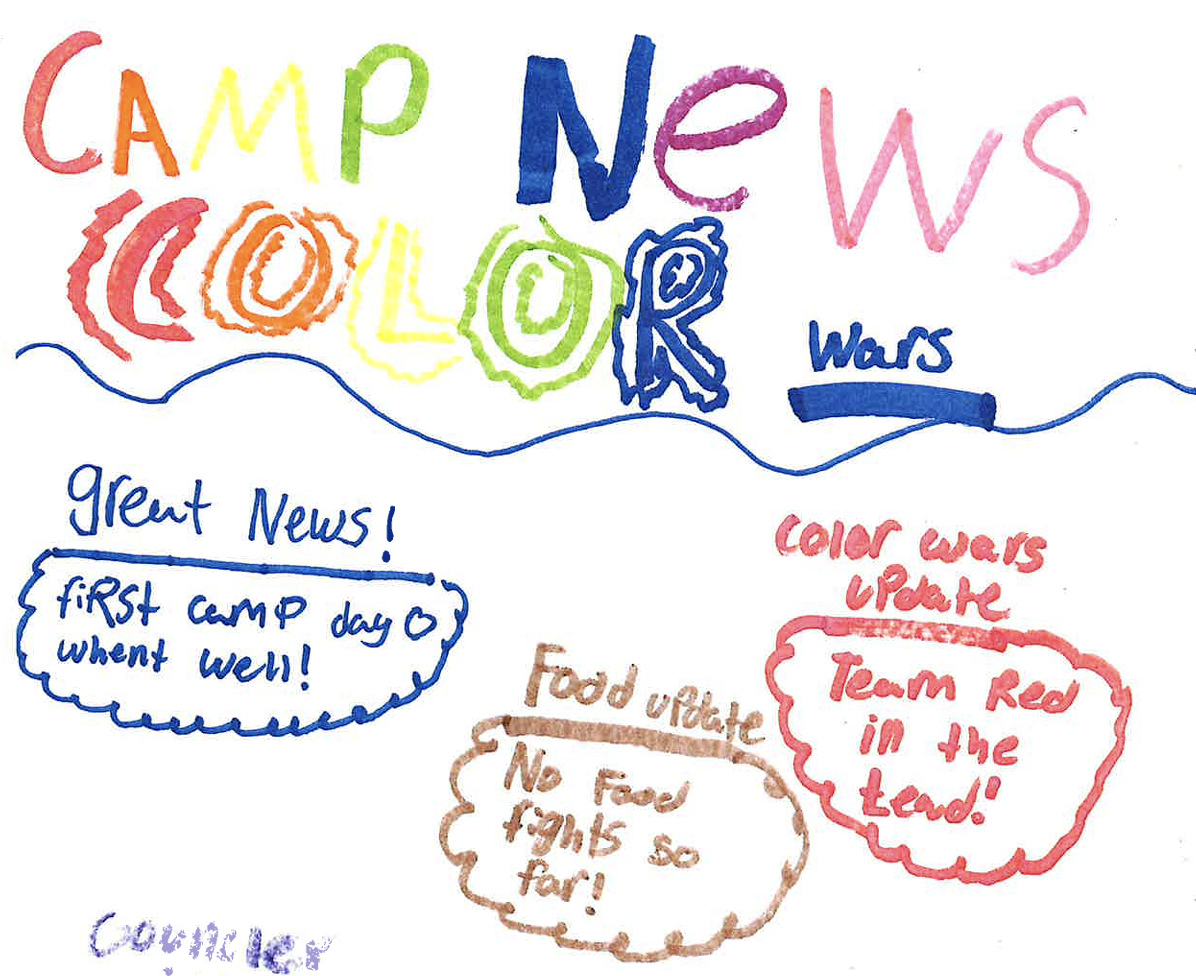 CAMP NeWS
COLOR
Wars
great News!
fiRSt camp day
whent well!
Color wars
update
Team Red
in the
lead!
Food update
No Food
fights so
far!
Councler